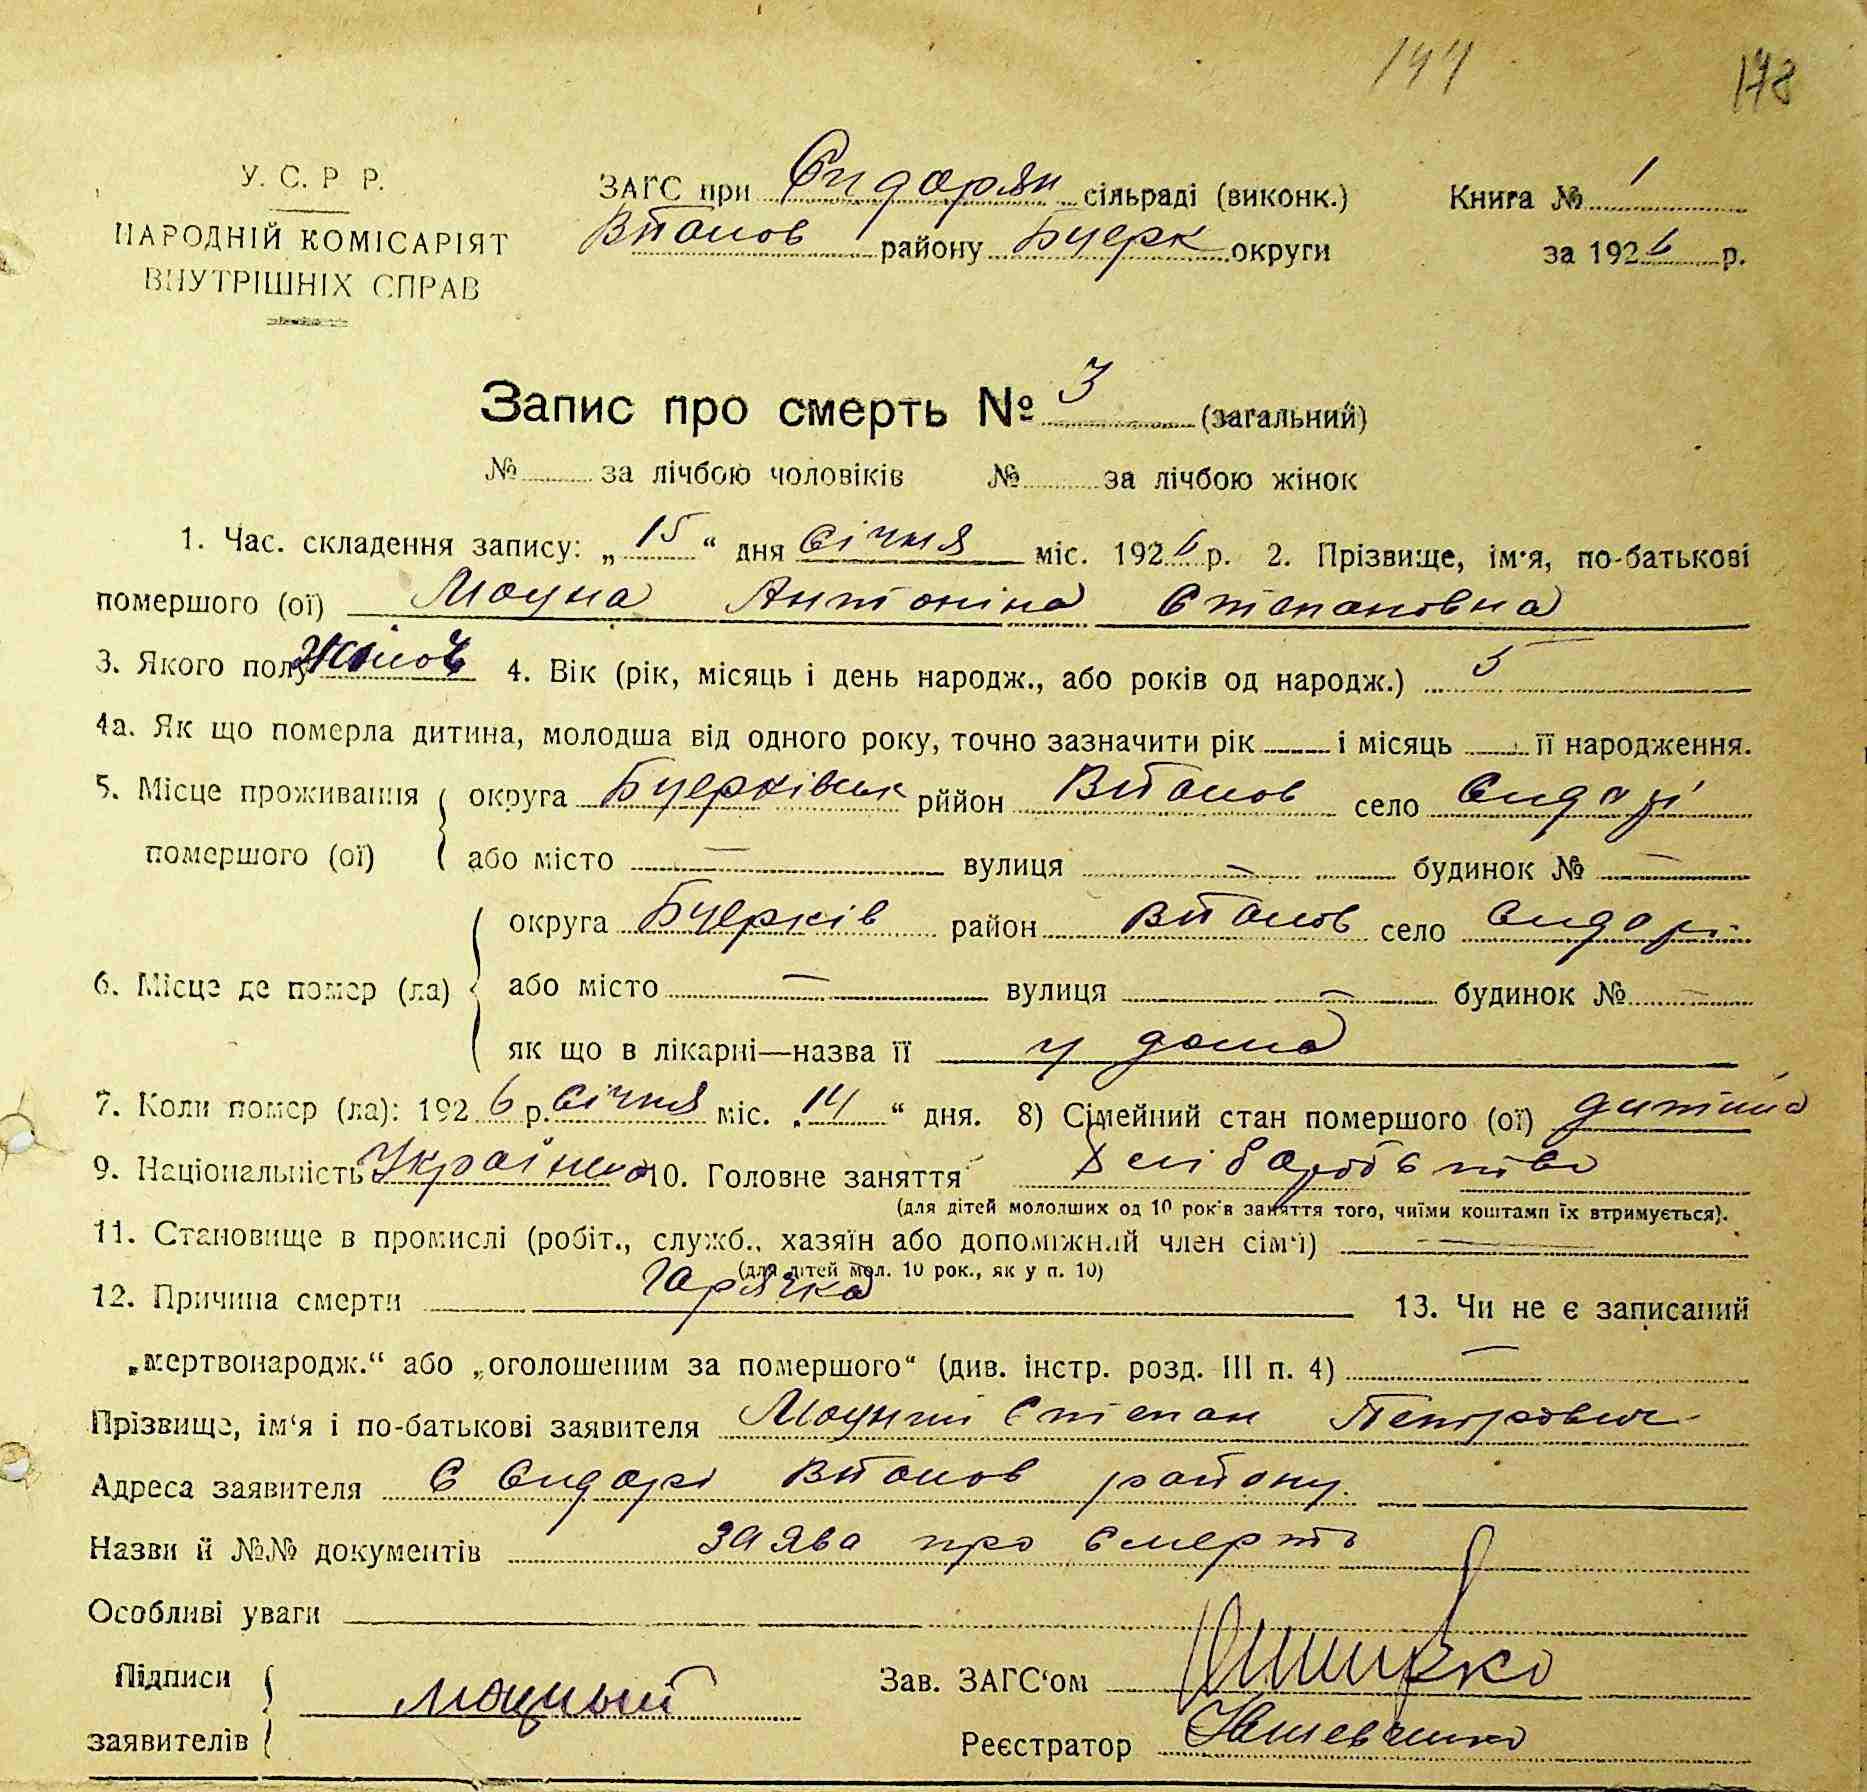 144 178
У. С. Р Р.
НАРОДНІЙ КОМІСАРІЯТ
ВНУТРІШНІХ СПРАВ
ЗАГС при Сидорян сільраді (виконк.)
району Бцерк округи
Книга № 1
за 1926 р.
Запис про смерть № 3 (загальний)
№ за лічбою чоловіків № за лічбою жінок
1. Час. складення запису: „15“ дня Січня міс. 1926 р. 2. Прізвище, ім'я, по-батькові
помершого (ої) Моцна Антоніна Степановна
3. Якого полу Жіноч 4. Вік (рік, місяць і день народж., або років од народж.) 5
4а. Як що померла дитина, молодша від одного року, точно зазначити рік — і місяць — її народження.
5. Місце проживання округа Бцерківськ рййон село Сидорі
помершого (ої) або місто — вулиця — будинок № —
округа Бцерків район село Сидорі
6. Місце де помер (ла) або місто — вулиця — будинок № —
як що в лікарні—назва її у дома
7. Коли помер (ла): 1926 р. Січня міс. „14“ дня. 8) Сімейний стан помершого (ої) дитина
9. Національність Українка 10. Головне заняття Хліборобство
(для дітей мололших од 10 років заняття того, чиїми коштами їх втримується).
11. Становище в промислі (робіт., служб., хазяїн або допоміжний член сім'ї) —
(для дітей мол. 10 рок., як у п. 10)
12. Причина смерти Гарячка 13. Чи не є записаний
„мертвонародж.“ або „оголошеним за помершого“ (див. інстр. розд. III п. 4) —
Прізвище, ім'я і по-батькові заявителя Моцний Степан Петрович
Адреса заявителя С Сидорі району
Назви й №№ документів заява про смерть
Особливі уваги
Підписи
заявителів Моцный
Зав. ЗАГС'ом
Реєстратор